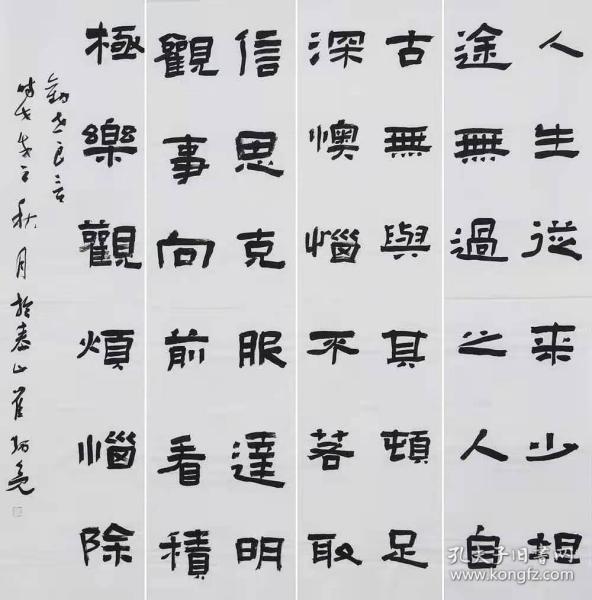 人生從來少坦
途無過之人自
古無與其頓足
深懊惱不若取
信思克服達明
觀事向前看積
極樂觀煩惱除
勸世良言
時戊戌之秋月於泰山崔
孔夫子旧书网
www.kongfz.com